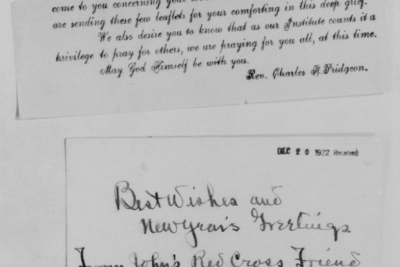 come to you concerning your
are sending these few leaflets for your comforting in this deep grief.
We also desire you to know that as our Institute counts it a
privilege to pray for others, we are praying for you all, at this time.
May God Himself be with you.
Rev. Charles H. Pridgeon.
DEC 20 1922 Received
Best Wishes and
New Year's Greetings
From John's Red Cross Friend